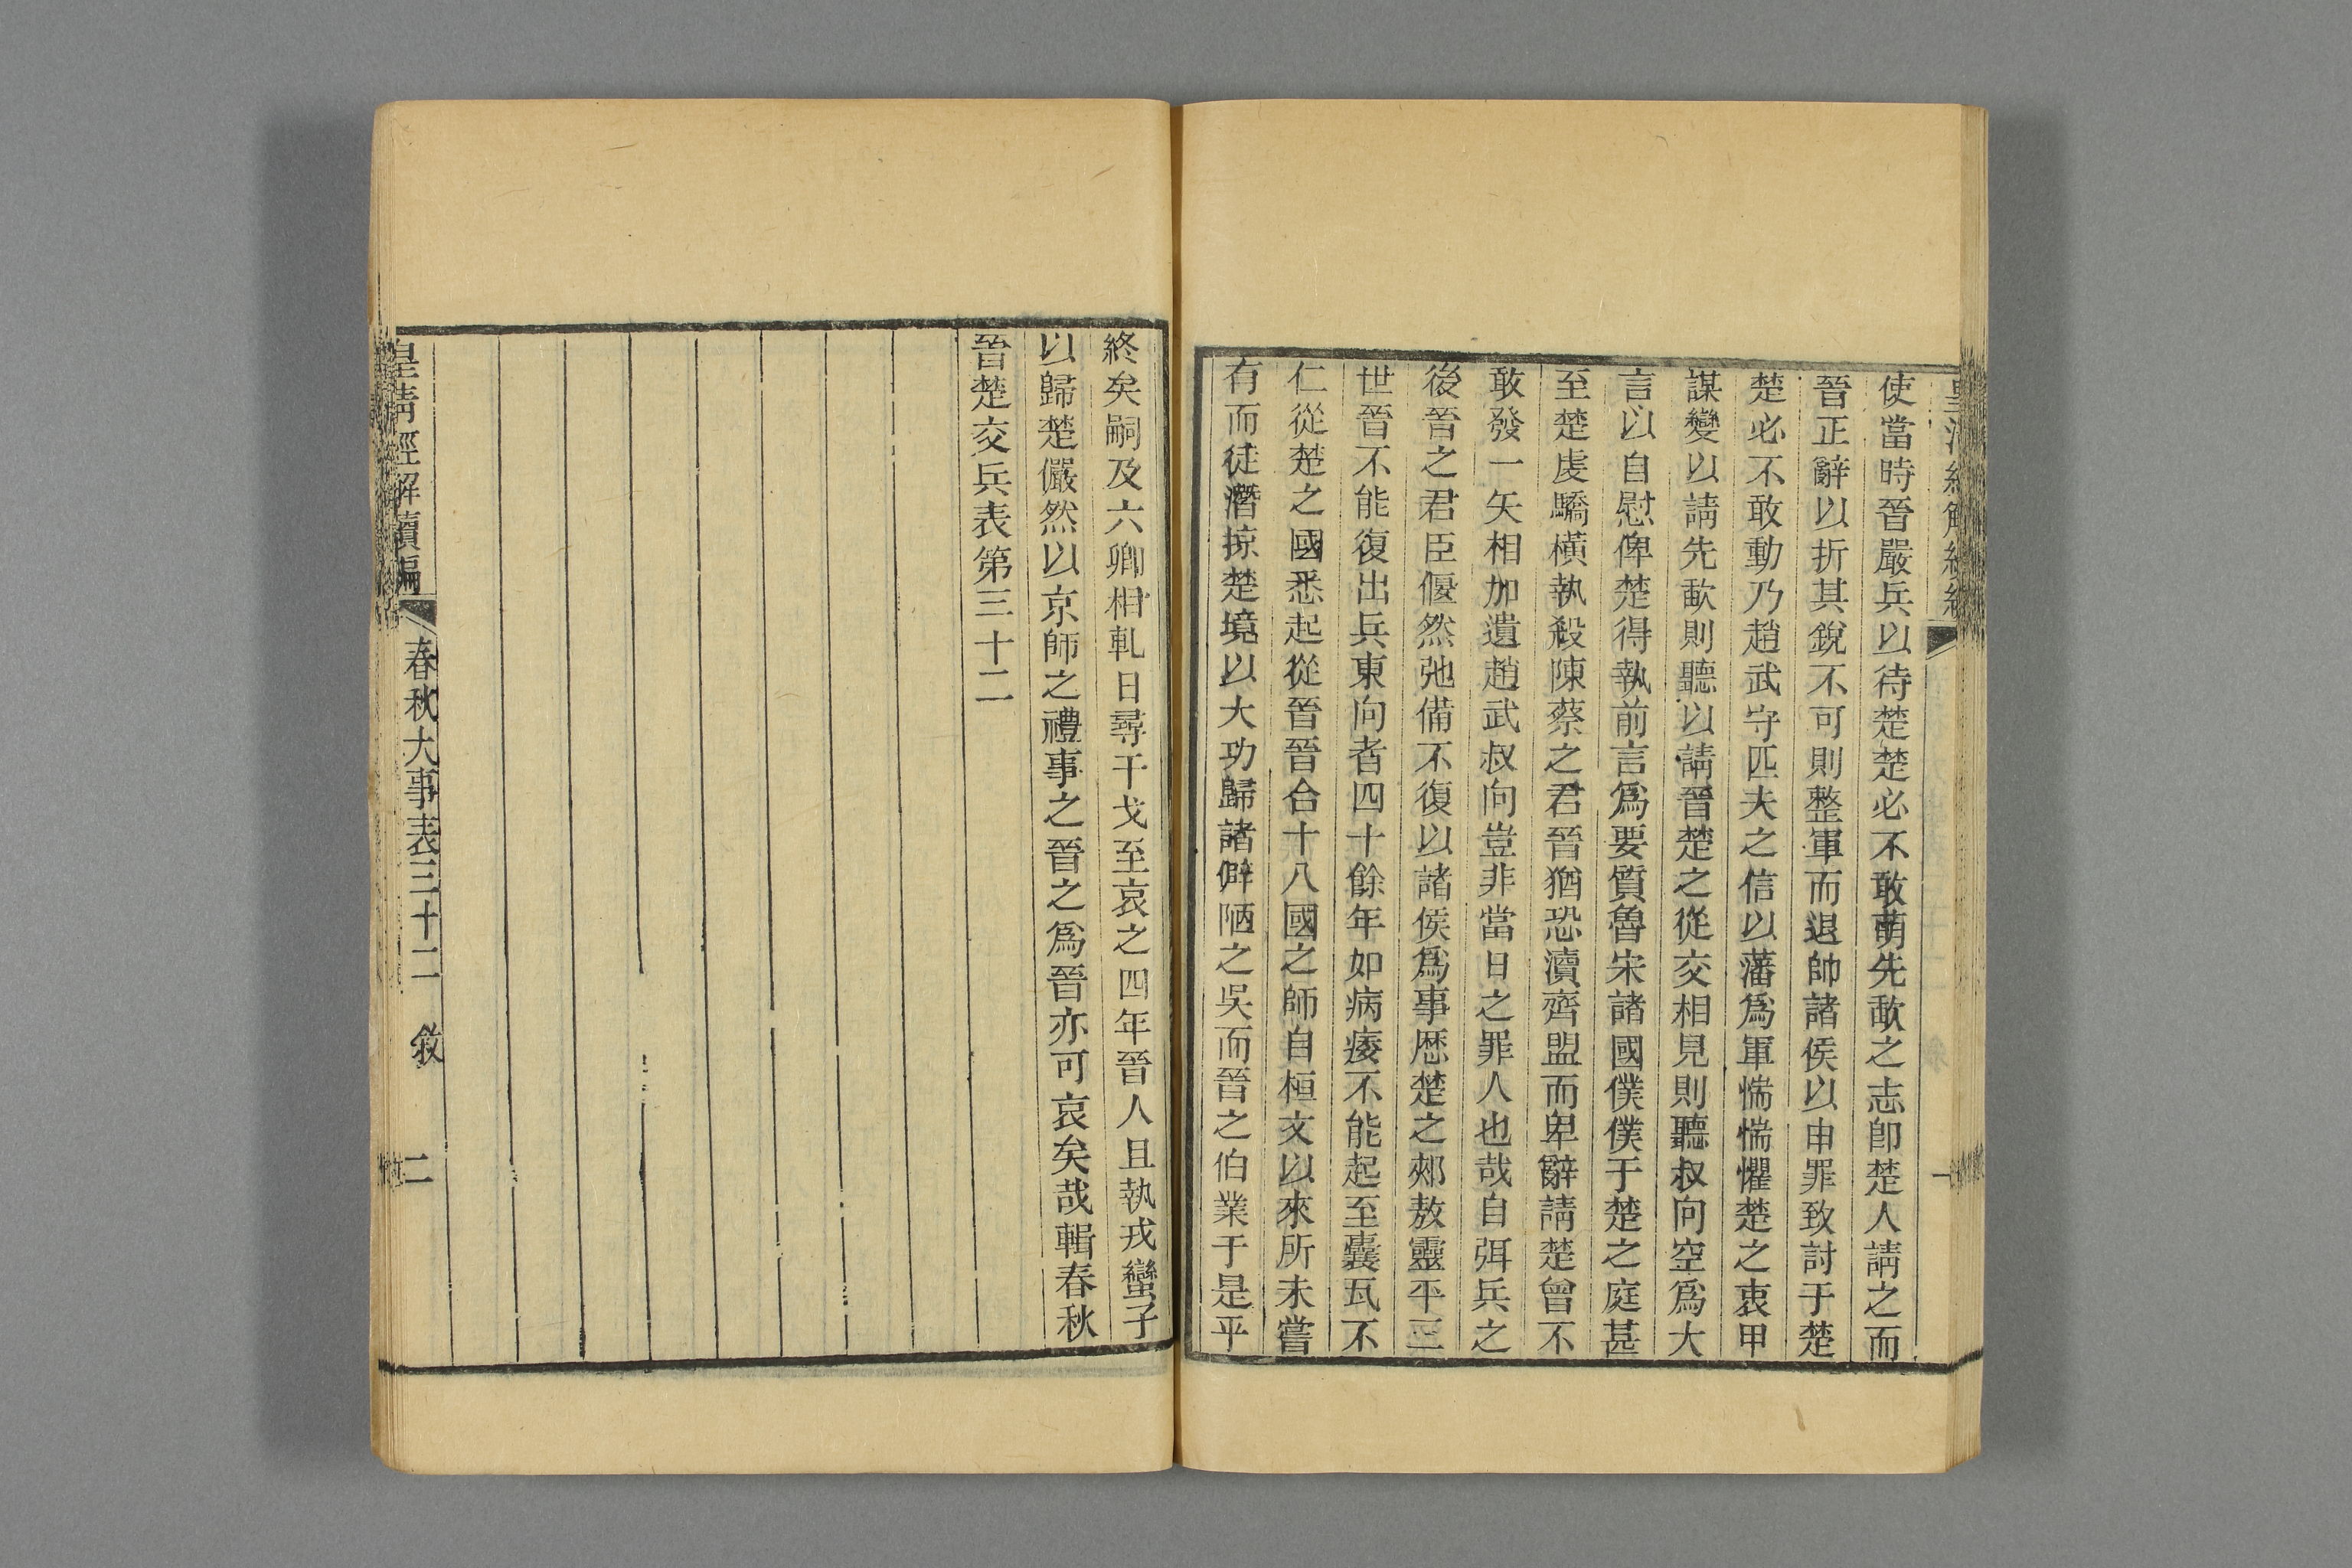 使當時晉嚴兵以待楚楚必不敢萌先歃之志卽楚人請之而
晉正辭以折其銳不可則整軍而退帥諸侯以申罪致討于楚
楚必不敢動乃趙武守匹夫之信以藩爲軍惴惴懼楚之衷甲
謀變以請先歃則聽以請晉楚之從交相見則聽叔向空爲大
言以自慰俾楚得執前言爲要質魯宋諸國僕僕于楚之庭甚
至楚虔驕橫執殺陳蔡之君晉猶恐瀆齊盟而卑辭請楚曾不
敢發一矢相加遺趙武叔向豈非當日之罪人也哉自弭兵之
後晉之君臣偃然弛備不復以諸侯爲事歷楚之郟敖靈平三
世晉不能復出兵東向者四十餘年如病痿不能起至囊瓦不
仁從楚之國悉起從晉晉合十八國之師自桓文以來所未嘗
有而徒潛掠楚境以大功歸諸僻陋之吳而晉之伯業于是乎
終矣嗣及六卿相軋日尋干戈至哀之四年晉人且執戎蠻子
以歸楚儼然以京師之禮事之晉之爲晉亦可哀矣哉輯春秋
晉楚交兵表第三十二
皇清經解續編 春秋大事表三十二 敘 二